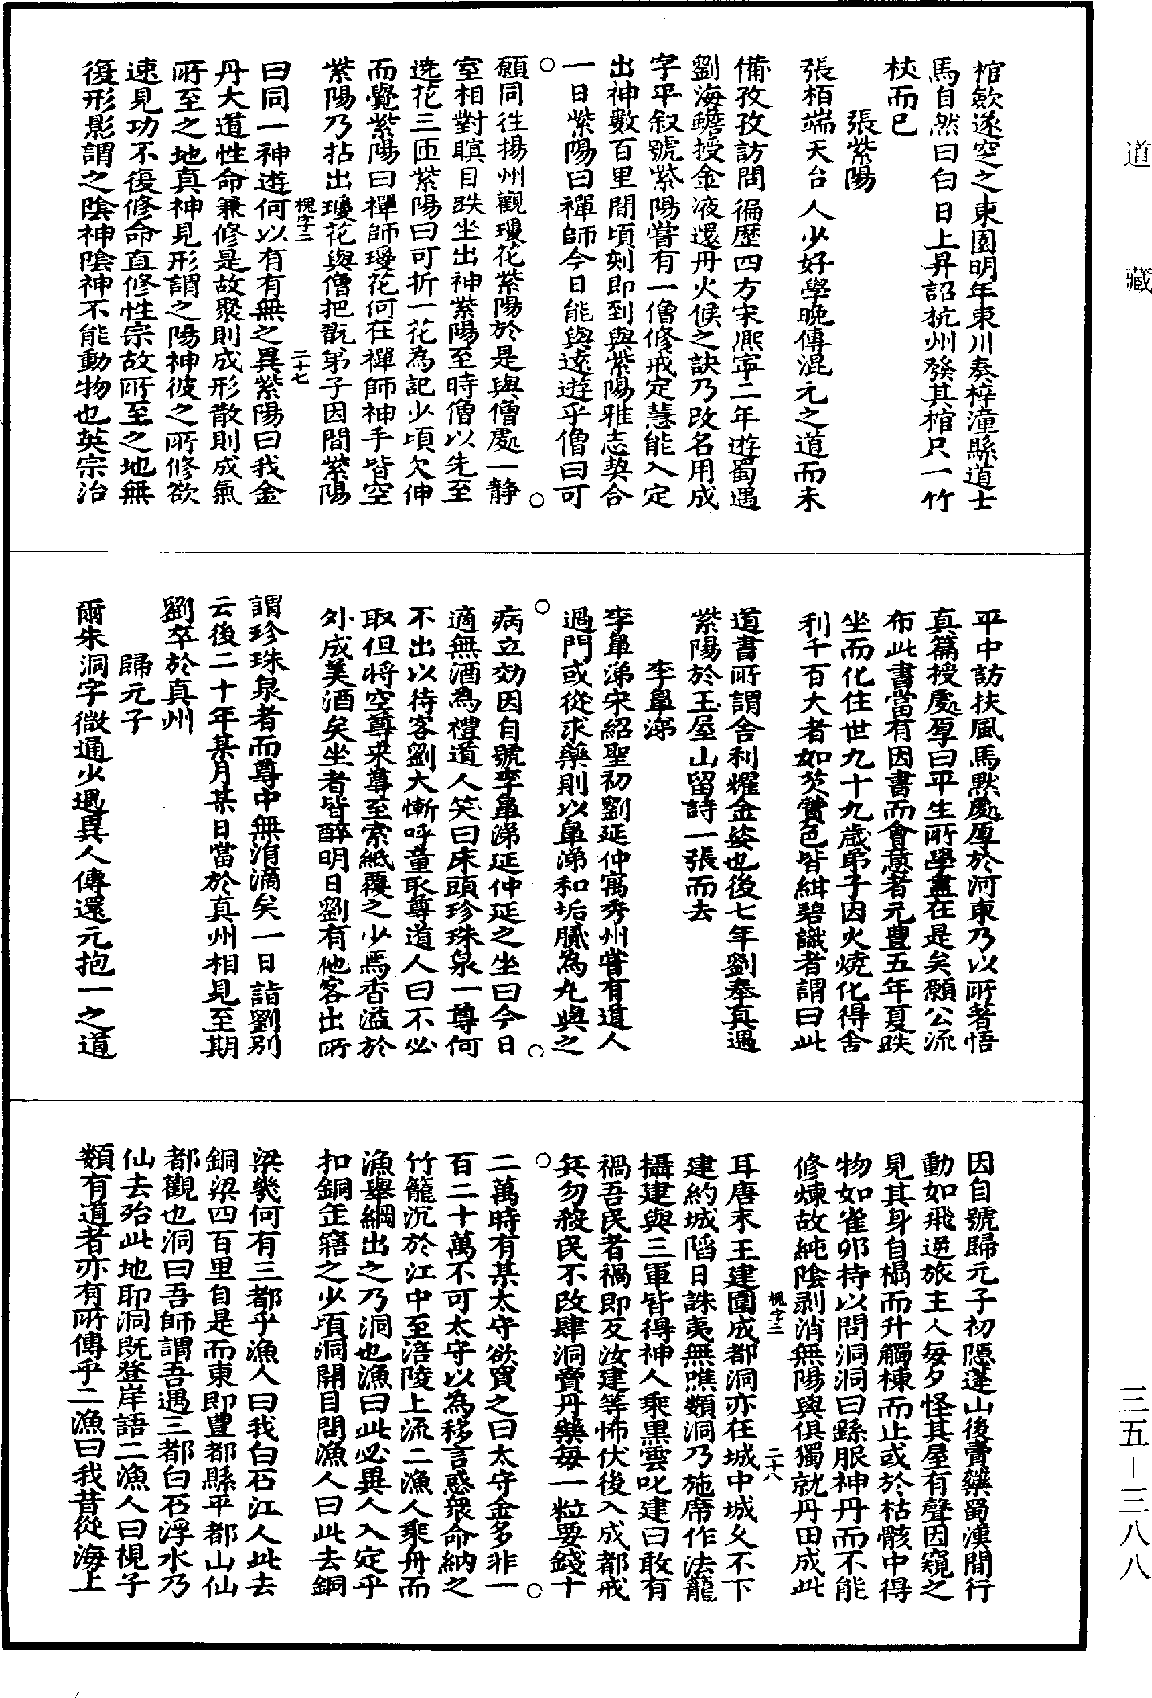 道藏
棺歛遂窆之東園明年東川奏梓潼縣道士
馬自然曰白日上昇詔杭州發其棺只一竹
杖而已
張紫陽
張栢端天台人少好學晚傳混元之道而未
備孜孜訪問徧歷四方宋熈寧二年遊蜀遇
劉海蟾授金液還丹火候之訣乃改名用成
字平叔號紫陽嘗有一僧修戒定慧能入定
出神數百里間頃刻即到與紫陽雅志契合
一日紫陽曰禪師今日能與遠遊乎僧曰可
願同往揚州觀瓊花紫陽於是與僧處一静
室相對瞑目趺坐出神紫陽至時僧以先至
遶花三匝紫陽曰可折一花為記少頃欠伸
而覺紫陽曰禪師瓊花何在禪師神手皆空
紫陽乃拈出瓊花與僧把翫弟子因問紫陽
槐字二 二十七
曰同一神遊何以有有無之異紫陽曰我金
丹大道性命兼修是故聚則成形散則成氣
所至之地真神見形謂之陽神彼之所修欲
速見功不復修命直修性宗故所至之地無
復形影謂之陰神陰神不能動物也英宗治
平中訪扶風馬默處厚於河東乃以所著悟
真篇授處厚曰平生所學盡在是矣願公流
布此書當有因書而會意者元豊五年夏趺
坐而化住世九十九歲弟子因火燒化得舍
利千百大者如芡實色皆紺碧識者謂曰此
道書所謂舍利耀金姿也後七年劉奉真遇
紫陽於王屋山留詩一張而去
李鼻涕
李鼻涕宋紹聖初劉延仲寓秀州嘗有道人
過門或從求藥則以鼻涕和垢膩為丸與之
病立効因自號李鼻涕延仲延之坐曰今日
適無酒為禮道人笑曰床頭珍珠泉一尊何
不出以待客劉大慚呼童取尊道人曰不必
取但將空尊来尊至索紙覆之少焉香溢於
外成美酒矣坐者皆醉明日劉有他客出所
謂珍珠泉者而尊中無涓滴矣一日詣劉別
云後二十年某月某日當於真州相見至期
劉卒於真州
歸元子
爾朱洞字微通少遇異人傳還元抱一之道
因自號歸元子初隱蓬山後賣藥蜀漢間行
動如飛逆旅主人每夕怪其屋有聲因窺之
見其身自榻而升觸棟而止或於枯骸中得
物如雀夘持以問洞洞曰縣服神丹而不能
修煉故純陰剥消無陽與俱獨就丹田成此
槐字二 二十八
耳唐末王建圍成都洞亦在城中城久不下
建約城陷日誅夷無噍類洞乃施席作法籠
攝建與三軍皆得神人乘黒雲叱建曰敢有
禍吾民者禍即反汝建等怖伏後入成都戒
兵勿殺民不改肆洞賣丹藥每一粒要錢十
二萬時有某太守欲買之曰太守金多非一
百二十萬不可太守以為移言惑衆命納之
竹籠沉於江中至涪陵上流二漁人乘舟而
漁舉網出之乃洞也漁曰此必異人入定乎
扣銅缶寤之少頃洞開目問漁人曰此去銅
梁幾何有三都乎漁人曰我白石江人此去
銅梁四百里自是而東即豊都縣平都山仙
都觀也洞曰吾師謂吾遇三都白石浮水乃
仙去殆此地耶洞既登岸語二漁人曰梘子
類有道者亦有所傳乎二漁曰我昔從海上
三五—三八八